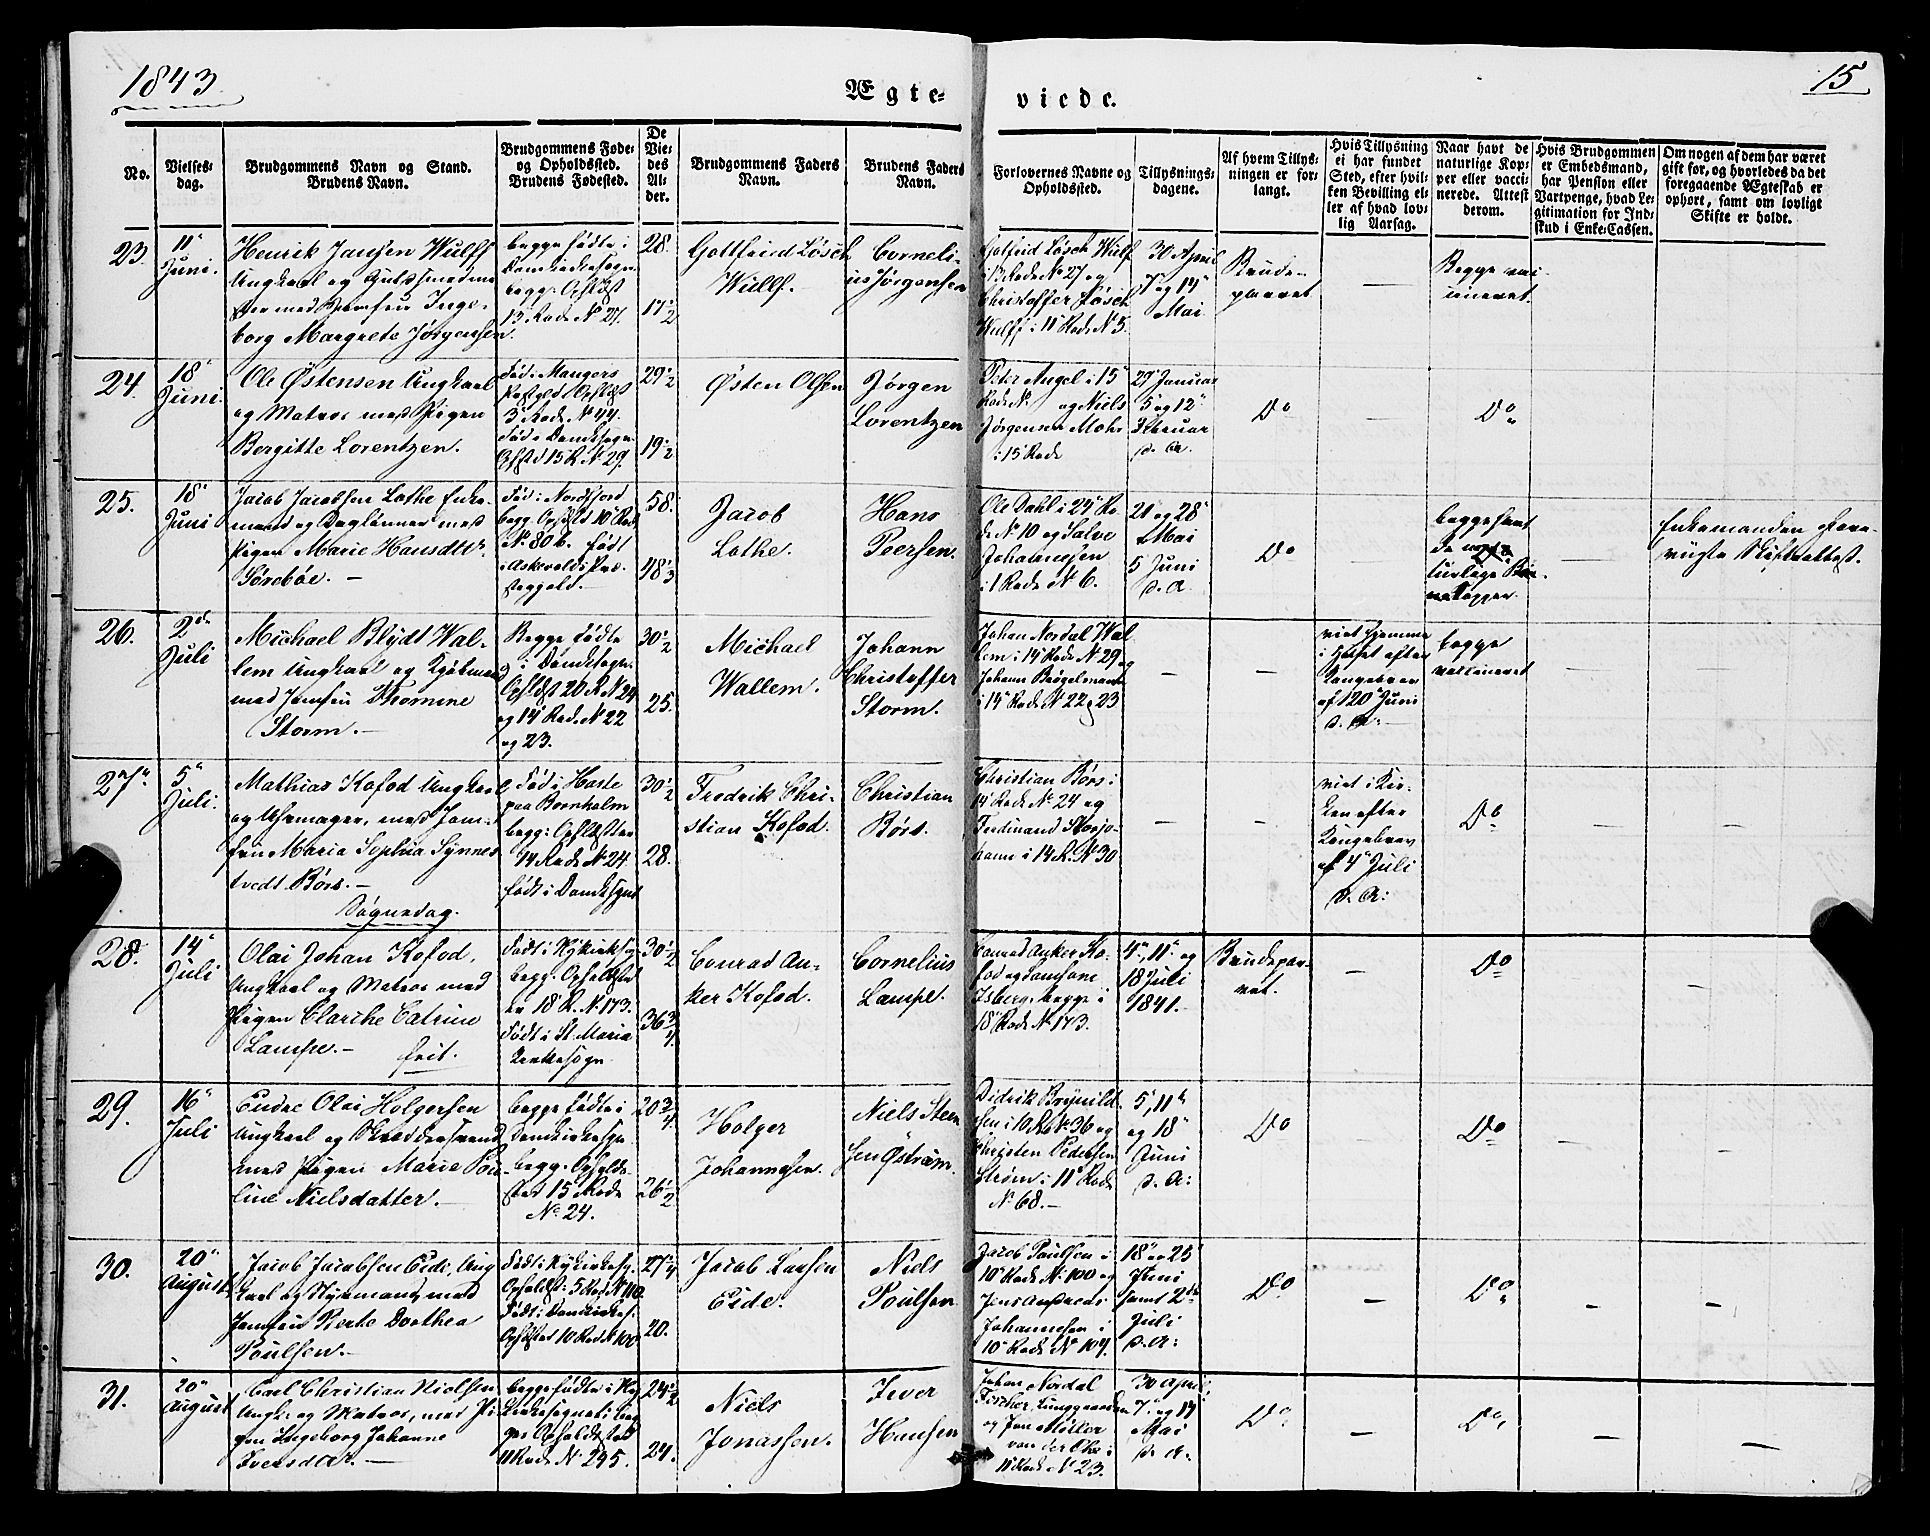 1843
15
Ægte-
viede.
No.
Vielses-
dag.
Brudgommens Navn og Stand.
Brudens Navn.
Brudgommens Føde-
og Opholdssted.
Brudens Fødested.
De
Vie-
des
Al-
der.
Brudgommens Faders
Navn.
Brudens Faders
Navn.
Forlovernes Navne og
Opholdssted.
Tillysnings-
dagene.
Af hvem Tillys-
ningen er for-
langt.
Hvis Tillysning
ei har fundet
Sted, efter hvil-
ken Bevilling el-
ler af hvad lov-
lig Aarsag.
Naar havt de
naturlige Kop-
per eller vacci-
nerede. Attest
derom.
Hvis Brudgommen
er Embedsmand,
har Pension eller
Vartpenge, hvad Le-
gitimation for Ind-
skud i Enke-Cassen.
Om nogen af dem har været
gift før, og hvorledes da det
foregaaende Ægteskab er
ophørt, samt om lovligt
Skifte er holdt.
23.
11"
Juni.
Henrik Jansen Wulff
Ungkarl og Guldsmedme-
ster med Jomfru Inge-
borg Margrete Jørgensen.
begge fødte i
Domkirkesogn.
begg: Opholdst
15 Rode No 27.
28.
17 1/2
Gottfried Løsch
Wulff.
Corneli-
us Jørgensen
Gotfrid Løsch Wulf
i 13 Rode No 27 og
Christoffer Løsch
Wulff i 11 Rode No 5.
30 April
7 og 14"
Mai
Brude-
parret
—
Begge vac-
cineret.
24.
18"
Juni.
Ole Østensen Ungkarl
og Matros med Pigen
Bergitte Lorentzen.
Fød i Mangers
Præstgd Opholdst
3 Rode No 44.
Fød i Domkesogn
Opholdst 15 R. No 29.
29 1/2
19 1/2
Østen Olsen
Jørgen
Lorentzen
Peter Angel i 15"
Rode No og Niels
Jørgensen Mohr
i 15 Rode
29" Januar
5 og 12"
Februar
d. A.
Do
—
Do
25.
18"
Juni
Jacob Jacobsen Lothe Enke-
mand og Daglønner med
Pigen Marie Hansdtr.
Sørebøe. —
Fød i Nordfjord
begg. Opholdst 10 Rode
No 80 b. født
i Askevolds Præ-
stegjeld. —
58.
48 1/3
Jacob
Lothe.
Hans
Peersen.
Ole Dahl i 24" Ro-
de No 10 og Salve
Johannesen
i 1 Rode No 6.
21 og 28"
Mai
5 Juni
d. A.
Do
—
begge havt
de na-
turlige Bør-
nekopper.
—
Enkemanden fore-
viigte Skifteattest.
26.
2den
Juli
Michael Blydt Wal-
lem Ungkarl og Kjøbmand
med Jomfru Thomine
Storm. —
Begge fødte
i Domkesogn.
Opholdst 20 R No 24
og 14 Rode No 22
og 23.
30 1/2
25.
Michael
Wallem.
Johann
Christoffer
Storm.
Johan Nordal Wal
lem i 14" Rode No 29 og
Johann Brøgelmann
i 14 Rode No 22 og 23
—
—
viet hjemme
i Huset efter
Kongebrev
af 20" Juni
d. A. —
begge
vaccineret
27"
5"
Juli.
Mathias Kofod Ungkarl
og Uhrmager, med Jom-
fru Maria Sophia Synnes-
tvedt Børs. —
Søgnedag.
Fød i Hasle
paa Bornholm
begg: Opholdsted
14 Rode No 24.
født i Domkesogn
30 1/2
28.
Fredrik Chri-
stian Kofod.
Christian
Børs.
Christian Børs i
14" Rode No 24 og
Ferdinand Storjo-
hann i 14 R. No 30
—
—
viet i Kir-
ken efter
Kongebrev
af 4" Juli
d. A:
Do
—
—
28.
14"
Juli
Olai Johan Kofod,
Ungkarl og Matros med
Pigen Clarche Catrine
Lampe. — frit.
Født i Nykirkesog
begg. Opholdsted
er 18 R. No 173.
Født i St. Maria
Kirkesogn
30 1/2
36 3/4
Conrad An-
ker Kofod.
Cornelius
Lampe.
Conrad Anker Ko-
fod og Samsone
Isberg, begge i
18" Rode No 173.
4", 11" og
18 Juli
1841.
Brudepar-
ret.
—
Do
—
29.
16"
Juli
Endre Olai Holgersen
Ungkarl og Skræddersvend
med Pigen Marie Pou-
line Nielsdatter. —
begge fødte i
Domkirkesogn.
begg. Opholds-
sted 15 Rode
No 24.
20 3/4
26 1/2
Holger
Johannesen.
Niels Steen
sen Østrøm.
Didrik Brynild-
sen i 10 Ro No 36 og
Christen Pedersen
Strøm i 11" Rode
No 68. —
5, 11"
og 18"
Juni
d. A:
Do
—
Do
—
—
30.
20"
August
Jacob Jacobsen Eide, Ung
karl og Styrmand, med
Jomfru Berte Dorthea
Poulsen. —
Født i Nykirkesog.
Opholdst: 5 Rode No 110
Født i Domkirkes.
Opholdsted 10 Rode No 100
27 1/4
20.
Jacob Larsen
Eide.
Niels
Poulsen
Jacob Poulsen i
10" Rode No 100 og
Jens Andreas
Johannesen i
10" Rode No 104.
18" og 25"
Juni
samt 2den
Juli
d. A:
Do
—
Do
—
—
31.
20"
August
Carl Christian Nielsen
Ungk: og Matros, med Pi-
gen Ingeborg Johanne
Iversdtr. —
begge fødte i Ny-
kirkesognet; beg-
ges Opholdssted
11 Rode No 295.
24 1/2
24.
Niels
Jonassen.
Iver
Hansen
Johan Nordal
Fischer, Lunggaarden
og Jan Møller
von der Ohe i
11" Rode No 23.
30 April
7" og 14"
Mai
d. A:
Do
—
Do
—
—